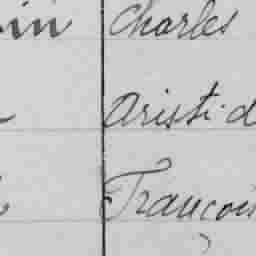 in Charles
Aristid
François